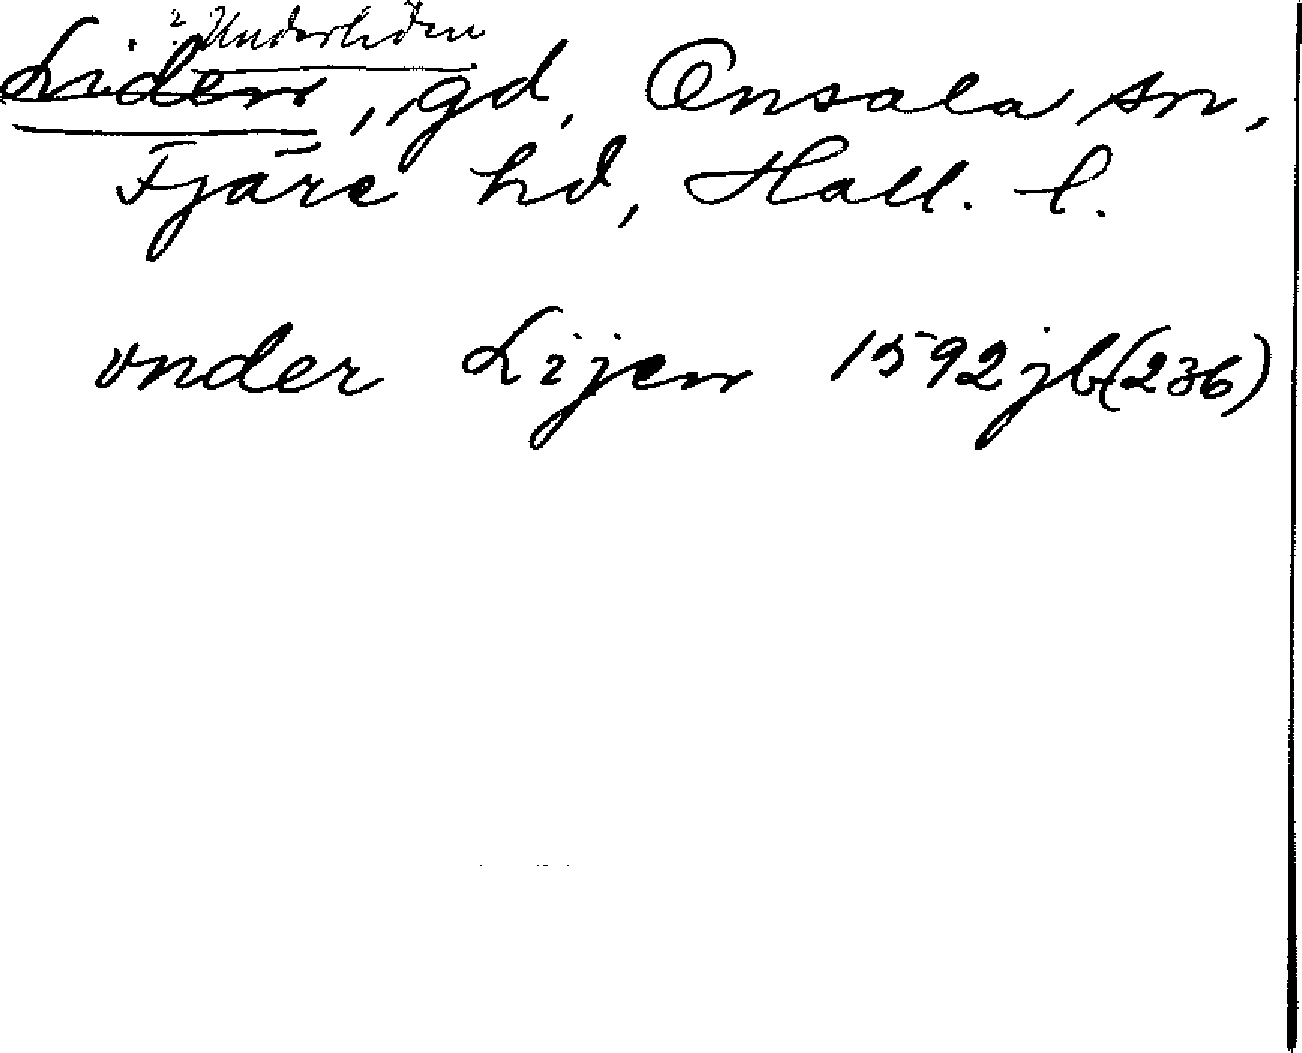 ? Underliden
Liden, gd, Onsala sn,
Fjäre hd, Hall. l.
vnder Lijen 1592 jb (236)